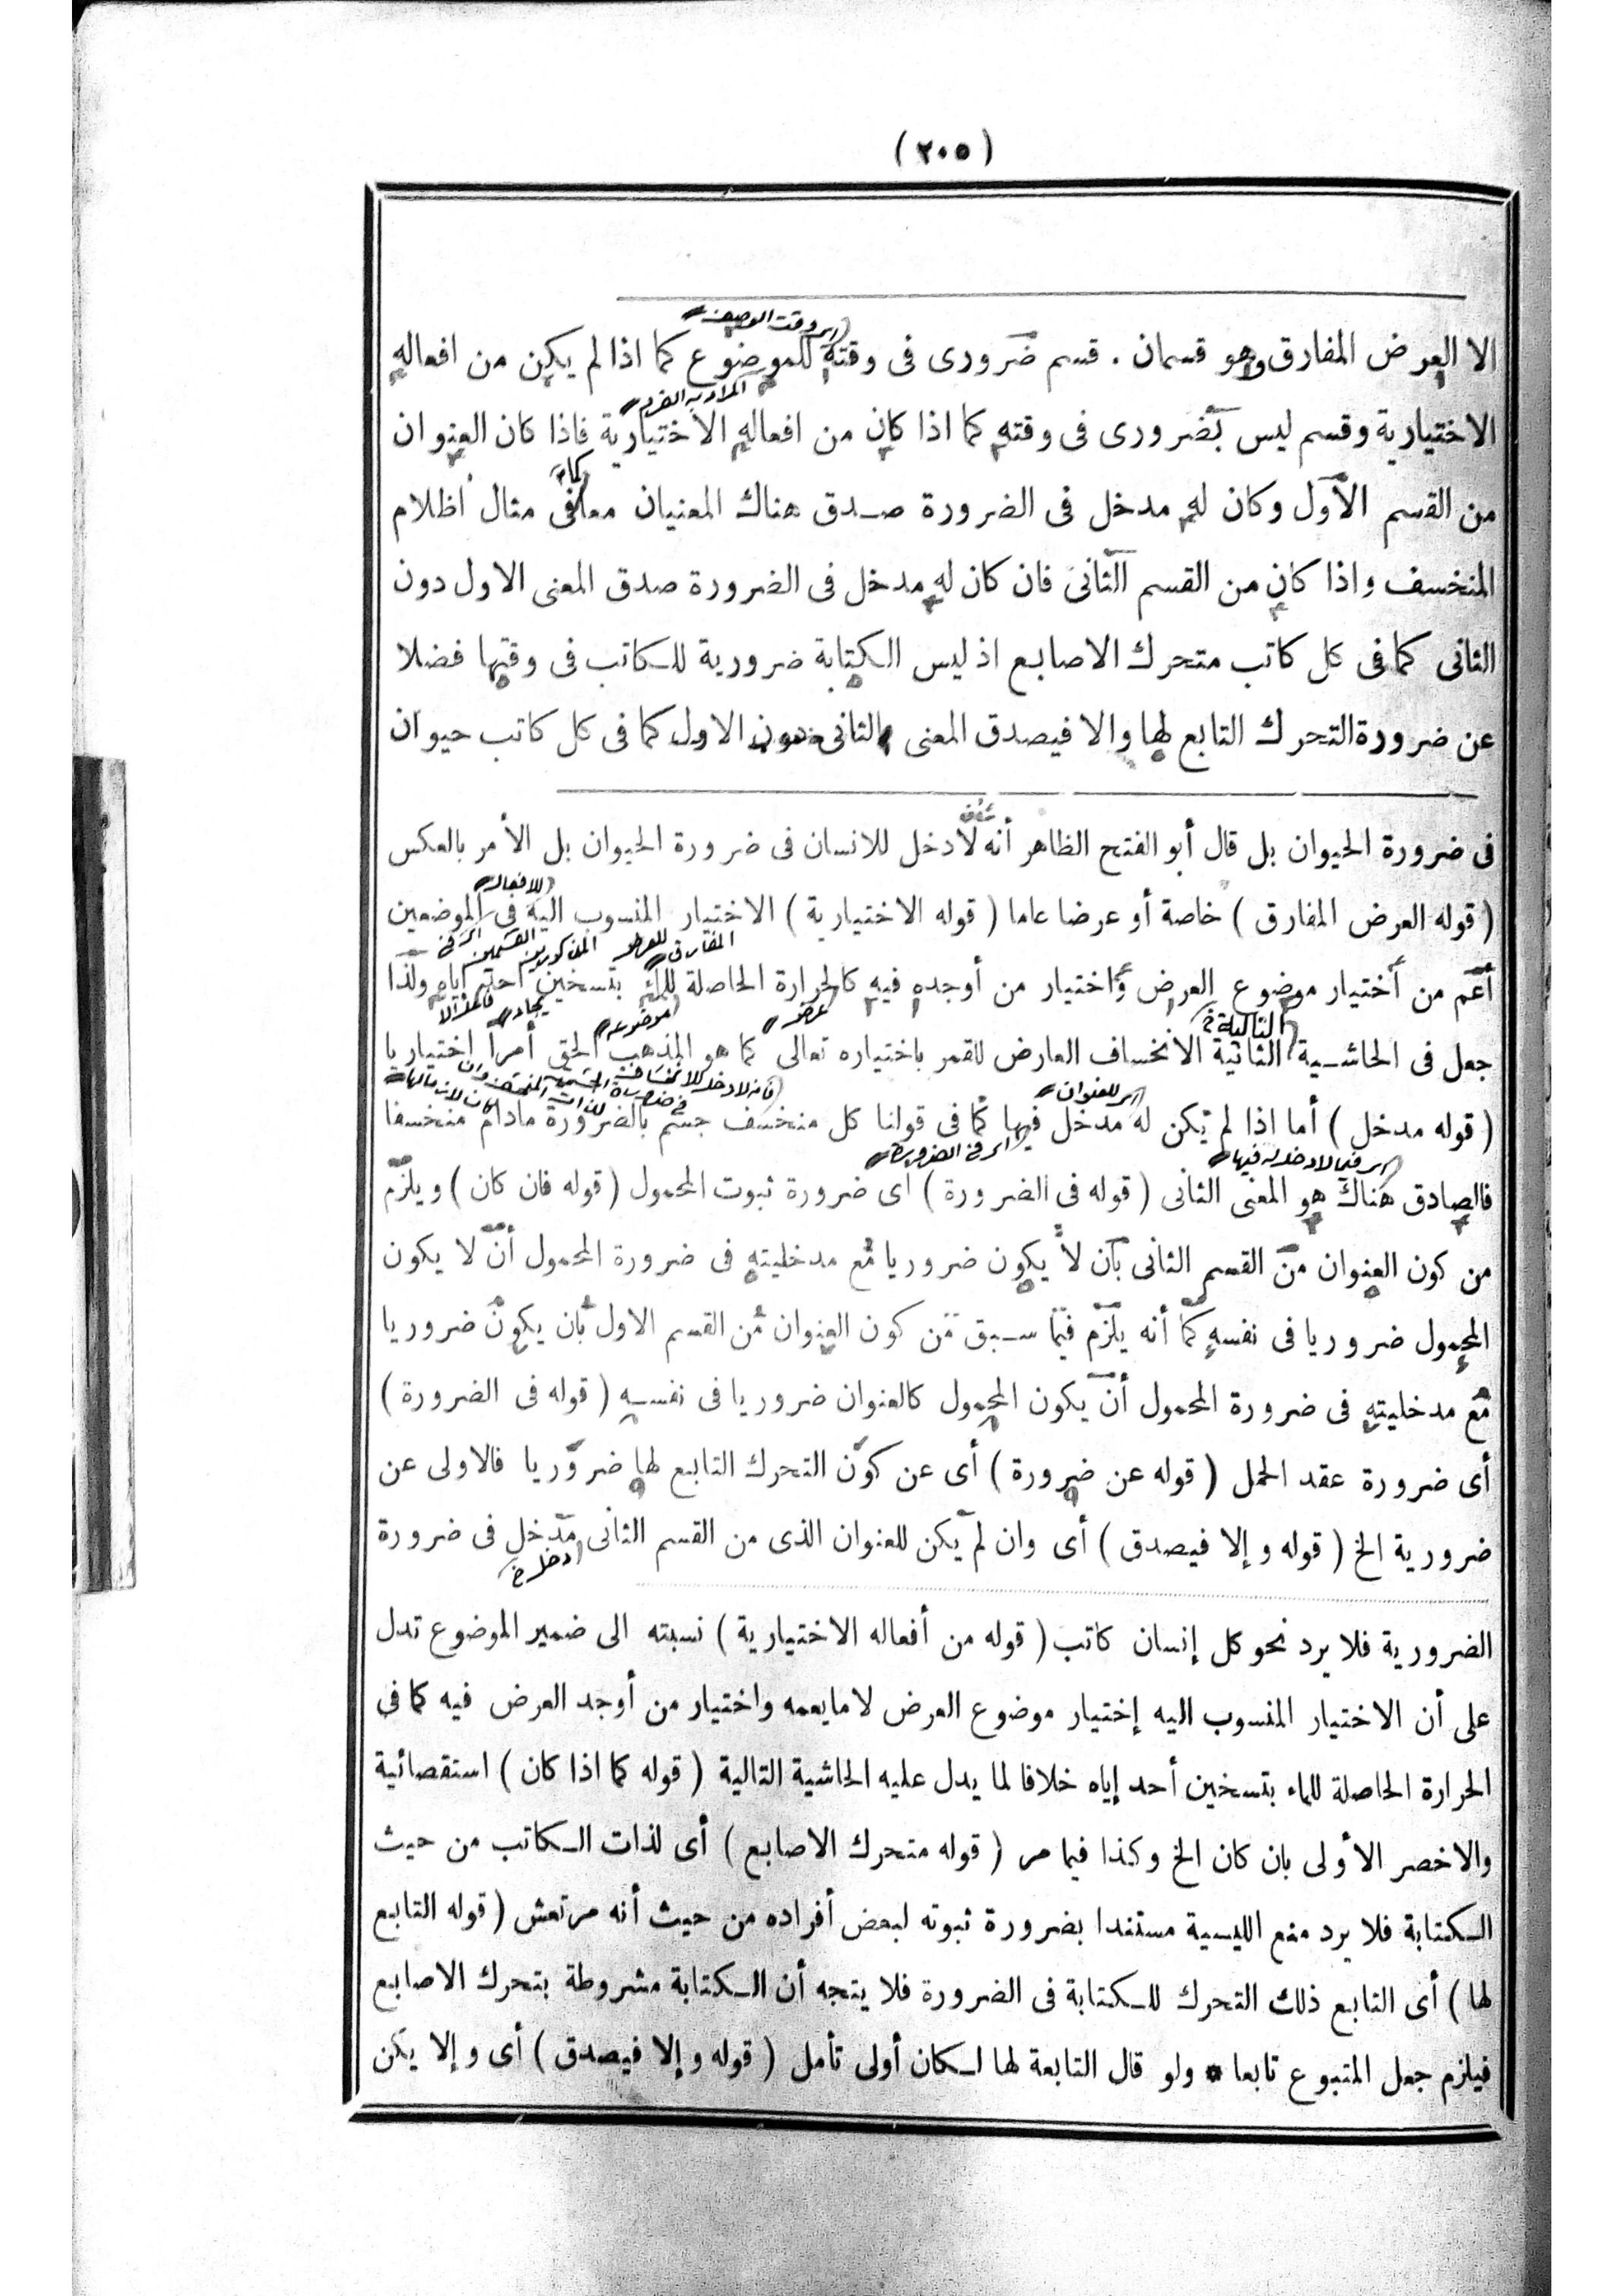 (٢٠٥)
الا العرض المفارق وهو قسمان . قسم ضرورى فى وقته للموضوع كما اذا لم يكن من افعاله
الاختيارية وقسم ليس بضرورى فى وقته كما اذا كان من افعاله الاختيارية فاذا كان العنوان
من القسم الأول وكان له مدخل فى الضرورة صدق هناك المعنيان معا فى مثال اظلام
المنخسف واذا كان من القسم الثانى فان كان له مدخل فى الضرورة صدق المعنى الاول دون
الثانى كما فى كل كاتب متحرك الاصابع اذ ليس الكتابة ضرورية للكاتب فى وقتها فضلا
عن ضرورة التحرك التابع لها والا فيصدق المعنى الثانى دون الاول كما فى كل كاتب حيوان
فى ضرورة الحيوان بل قال أبو الفتح الظاهر أنه لا دخل للانسان فى ضرورة الحيوان بل الأمر بالعكس
(قوله العرض المفارق) خاصة أو عرضا عاما (قوله الاختيارية) الاختيار المنسوب اليه فى الموضعين
أعم من أختيار موضوع العرض واختيار من أوجده فيه كالحرارة الحاصلة للماء بتسخين احد إياه ولذا
جعل فى الحاشية الثانية الانخساف العارض للقمر باختياره تعالى كما هو المذهب الحق أمرا إختياريا
(قوله مدخل) أما اذا لم يكن له مدخل فيها كما فى قولنا كل منخسف جسم بالضرورة مادام منخسفا
فالصادق هناك هو المعنى الثانى (قوله فى الضرورة) اى ضرورة ثبوت المحمول (قوله فان كان) ويلزم
من كون العنوان من القسم الثانى بأن لا يكون ضروريا مع مدخليته فى ضرورة المحمول أن لا يكون
المحمول ضروريا فى نفسه كما أنه يلزم فيما سبق من كون العنوان من القسم الاول بأن يكون ضروريا
مع مدخليته فى ضرورة المحمول أن يكون المحمول كالعنوان ضروريا فى نفسه (قوله فى الضرورة)
أى ضرورة عقد الحمل (قوله عن ضرورة) أى عن كون التحرك التابع لها ضروريا فالاولى عن
ضرورية الخ (قوله وإلا فيصدق) أى وان لم يكن للعنوان الذى من القسم الثانى مدخل فى ضرورة
الضرورية فلا يرد نحو كل إنسان كاتب (قوله من أفعاله الاختيارية) نسبته الى ضمير الموضوع تدل
على أن الاختيار المنسوب اليه إختيار موضوع العرض لا مايعمه واختيار من أوجد العرض فيه كما فى
الحرارة الحاصلة للماء بتسخين أحد إياه خلافا لما يدل عليه الحاشية التالية (قوله كما اذا كان) استقصائية
والاخصر الأولى بان كان الخ وكذا فيما مر (قوله متحرك الاصابع) أى لذات الكاتب من حيث
الكتابة فلا يرد منع الليسية مستندا بضرورة ثبوته لبعض أفراده من حيث أنه مرتعش (قوله التابع
لها) أى التابع ذلك التحرك للكتابة فى الضرورة فلا يتجه أن الكتابة مشروطة بتحرك الاصابع
فيلزم جعل المتبوع تابعا * ولو قال التابعة لها لكان أولى تأمل (قوله وإلا فيصدق) أى وإلا يكن